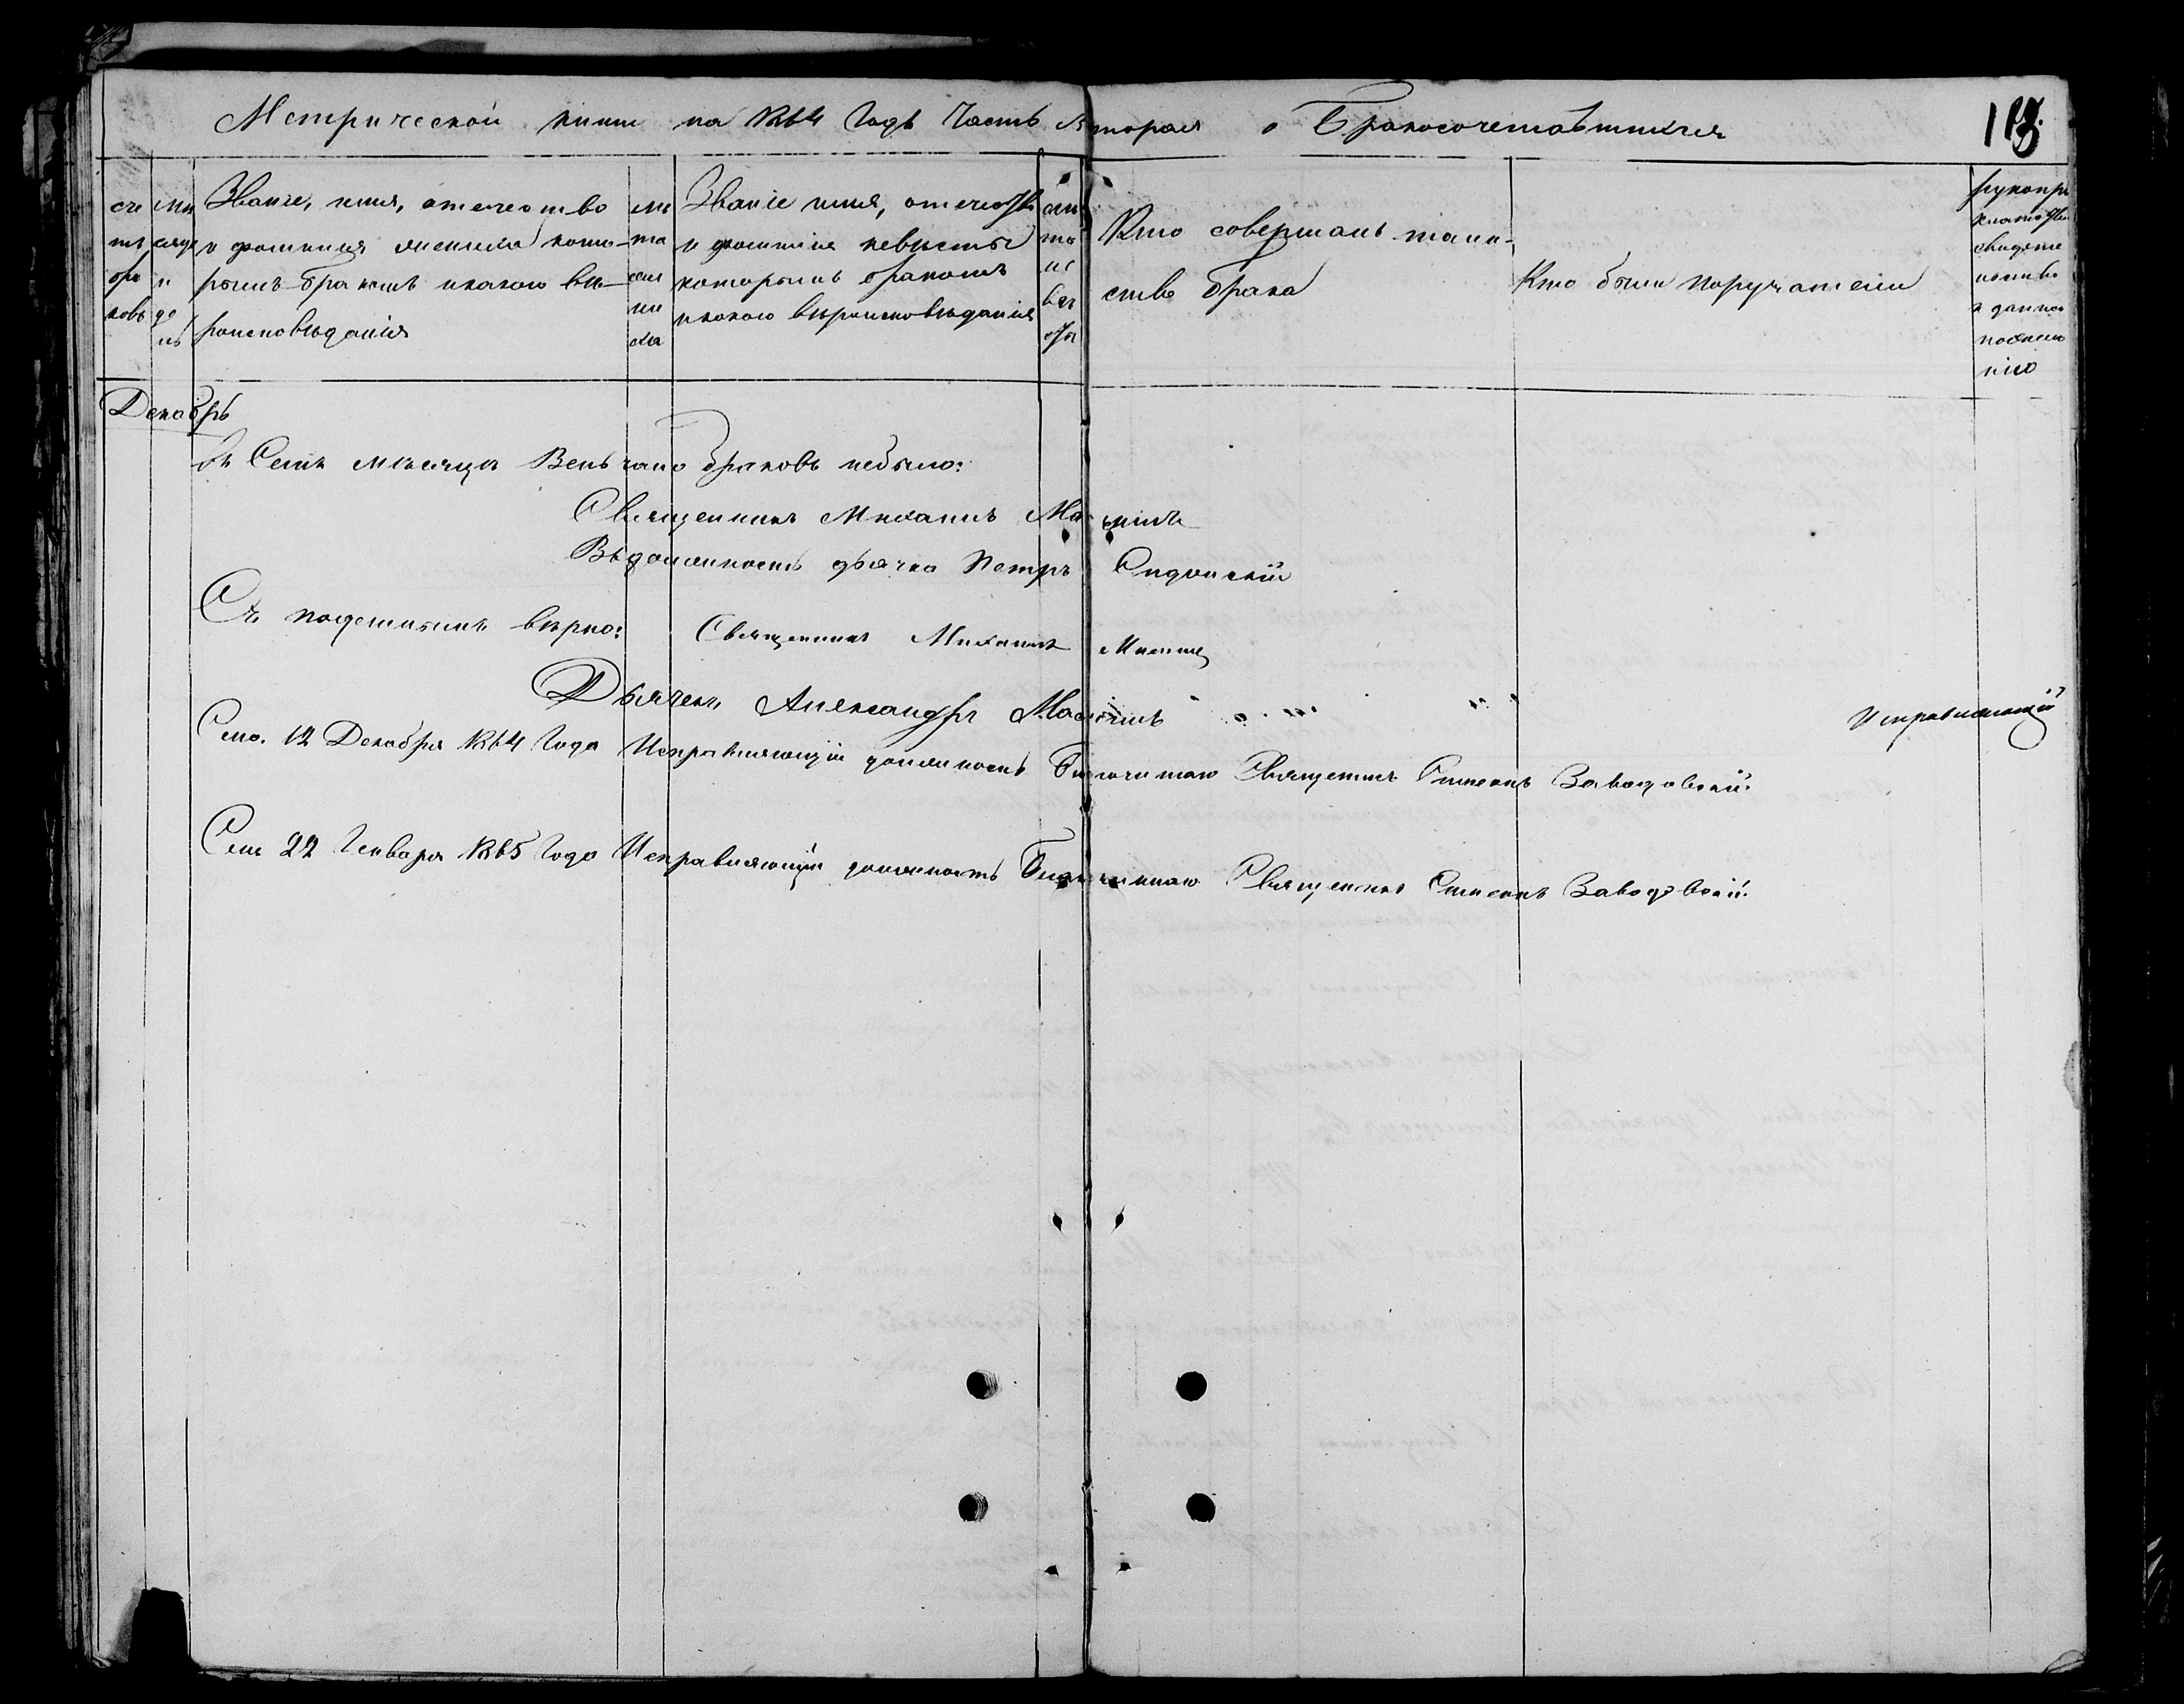 Метрической книги на 1864 Годъ Часть вторая о Бракосочетавшихся
113.
сче
тъ
бра
ковъ
Мѣ
сяцъ
и
де
нь
Званіе, имя, отечество
и фамилия жениха кото-
рымъ бракомъ икакого вѣ-
роисповѣданія
лѣ
та
же
ни
ха
Званіе имя, отечество
и фамилія невѣсты
которымъ бракомъ
икакого вѣроисповѣданія
лѣ
та
не
вѣ
сты
Кто совершалъ таин-
ство брака
Кто были поручатели
рукопри
кладство
свидѣте
записи
по желанию
Декабрь
Въ Семъ мѣсяцѣ Венчано браковъ небыло:
Священникъ Михаилъ
Въ должность дьячка Петръ
Съ подлиннымъ вѣрно: Священникъ Михаилъ
Дьячекъ Александръ
Исправляющій
12 Декабря 1864 Года Исправляющій должность Благочиннаго Священникъ Симеонъ Заводовскій.
22 Генваря 1865 Года Исправляющій должность Благочиннаго Священникъ Симеонъ Заводовскій.